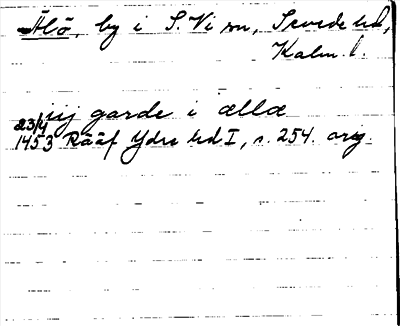 Älö, by i S. Vi sn, Sevede hd,
Kalm. l.
iij garde i ællæ
23/4
1453 Rääf Ydre hd I, s. 254. orig.